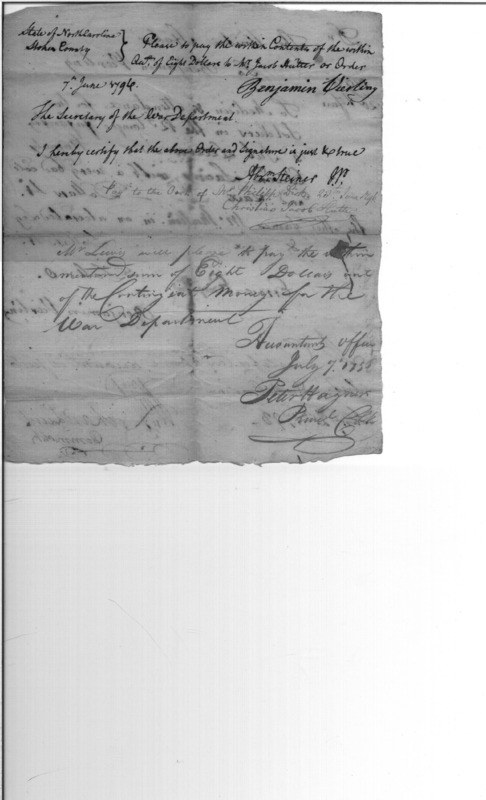 State of North Carolina } Please to pay the within Contents of the within
Stokes County } Act. of Eight Dollars to Mr. Jacob Hutter or Order
7th June 1794. Benjamin Vierling
The Secretary of the War Department
I hereby certify that the above Order and Signature is just & true
Abm. Steiner JP.
Pay to the Order of Mr. Philipp 24th June
Christian Jacob Hutter
Mr. Lewis will please to pay the within
mentioned sum of Eight Dollars out
of the Contingent Money for the
War Department
Accountants office
July 7th
Peter Hagner
Prinl. Clk